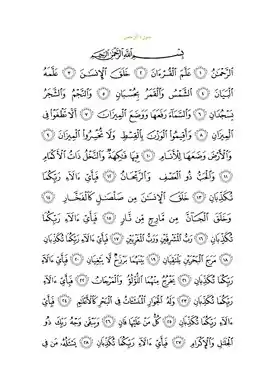 سورة الرحمن
بِسْمِ اللَّهِ الرَّحْمَٰنِ الرَّحِيمِ
الرَّحْمَٰنُ ١ عَلَّمَ الْقُرْءَانَ ٢ خَلَقَ الْإِنسَٰنَ ٣ عَلَّمَهُ
الْبَيَانَ ٤ الشَّمْسُ وَالْقَمَرُ بِحُسْبَانٍ ٥ وَالنَّجْمُ وَالشَّجَرُ
يَسْجُدَانِ ٦ وَالسَّمَآءَ رَفَعَهَا وَوَضَعَ الْمِيزَانَ ٧ أَلَّا تَطْغَوْا فِي
الْمِيزَانِ ٨ وَأَقِيمُوا الْوَزْنَ بِالْقِسْطِ وَلَا تُخْسِرُوا الْمِيزَانَ ٩
وَالْأَرْضَ وَضَعَهَا لِلْأَنَامِ ١٠ فِيهَا فَٰكِهَةٌ وَالنَّخْلُ ذَاتُ الْأَكْمَامِ
١١ وَالْحَبُّ ذُو الْعَصْفِ وَالرَّيْحَانُ ١٢ فَبِأَيِّ ءَالَآءِ رَبِّكُمَا
تُكَذِّبَانِ ١٣ خَلَقَ الْإِنسَٰنَ مِن صَلْصَٰلٍ كَالْفَخَّارِ ١٤
وَخَلَقَ الْجَآنَّ مِن مَّارِجٍ مِّن نَّارٍ ١٥ فَبِأَيِّ ءَالَآءِ رَبِّكُمَا
تُكَذِّبَانِ ١٦ رَبُّ الْمَشْرِقَيْنِ وَرَبُّ الْمَغْرِبَيْنِ ١٧ فَبِأَيِّ ءَالَآءِ رَبِّكُمَا تُكَذِّبَانِ
١٨ مَرَجَ الْبَحْرَيْنِ يَلْتَقِيَانِ ١٩ بَيْنَهُمَا بَرْزَخٌ لَّا يَبْغِيَانِ ٢٠ فَبِأَيِّ ءَالَآءِ
رَبِّكُمَا تُكَذِّبَانِ ٢١ يَخْرُجُ مِنْهُمَا اللُّؤْلُؤُ وَالْمَرْجَانُ ٢٢ فَبِأَيِّ ءَالَآءِ رَبِّكُمَا
تُكَذِّبَانِ ٢٣ وَلَهُ الْجَوَارِ الْمُنشَـَٔاتُ فِي الْبَحْرِ كَالْأَعْلَٰمِ ٢٤ فَبِأَيِّ
ءَالَآءِ رَبِّكُمَا تُكَذِّبَانِ ٢٥ كُلُّ مَنْ عَلَيْهَا فَانٍ ٢٦ وَيَبْقَىٰ وَجْهُ رَبِّكَ ذُو
الْجَلَٰلِ وَالْإِكْرَامِ ٢٧ فَبِأَيِّ ءَالَآءِ رَبِّكُمَا تُكَذِّبَانِ ٢٨ يَسْـَٔلُهُ مَن فِي